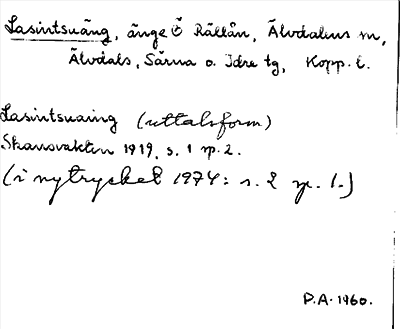 Lasintsuäng, änge Ö Rällån, Älvdalens sn,
Älvdals, Särna o. Idre tg, Kopp. l.
Lasintsuaing (uttalsform)
Skansvakten 1919, s. 1 sp. 2.
(i nytrycket 1974: s. 2 sp. 1.)
P.A. 1960.